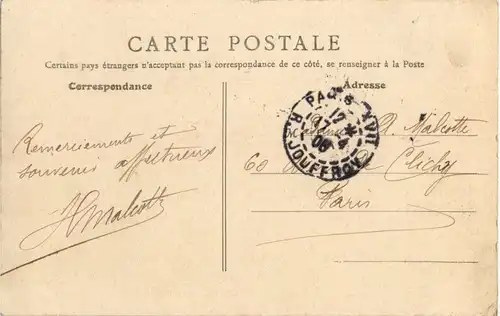 CARTE POSTALE
Certains pays étrangers n'acceptant pas la correspondance de ce côté, se renseigner à la Poste
Correspondance
Adresse
Remerciements et
souvenir affectueux
HMalcotte
PARIS XVII
R. JOUFFROY
17
06
A Malcotte
60 de Clichy
Paris